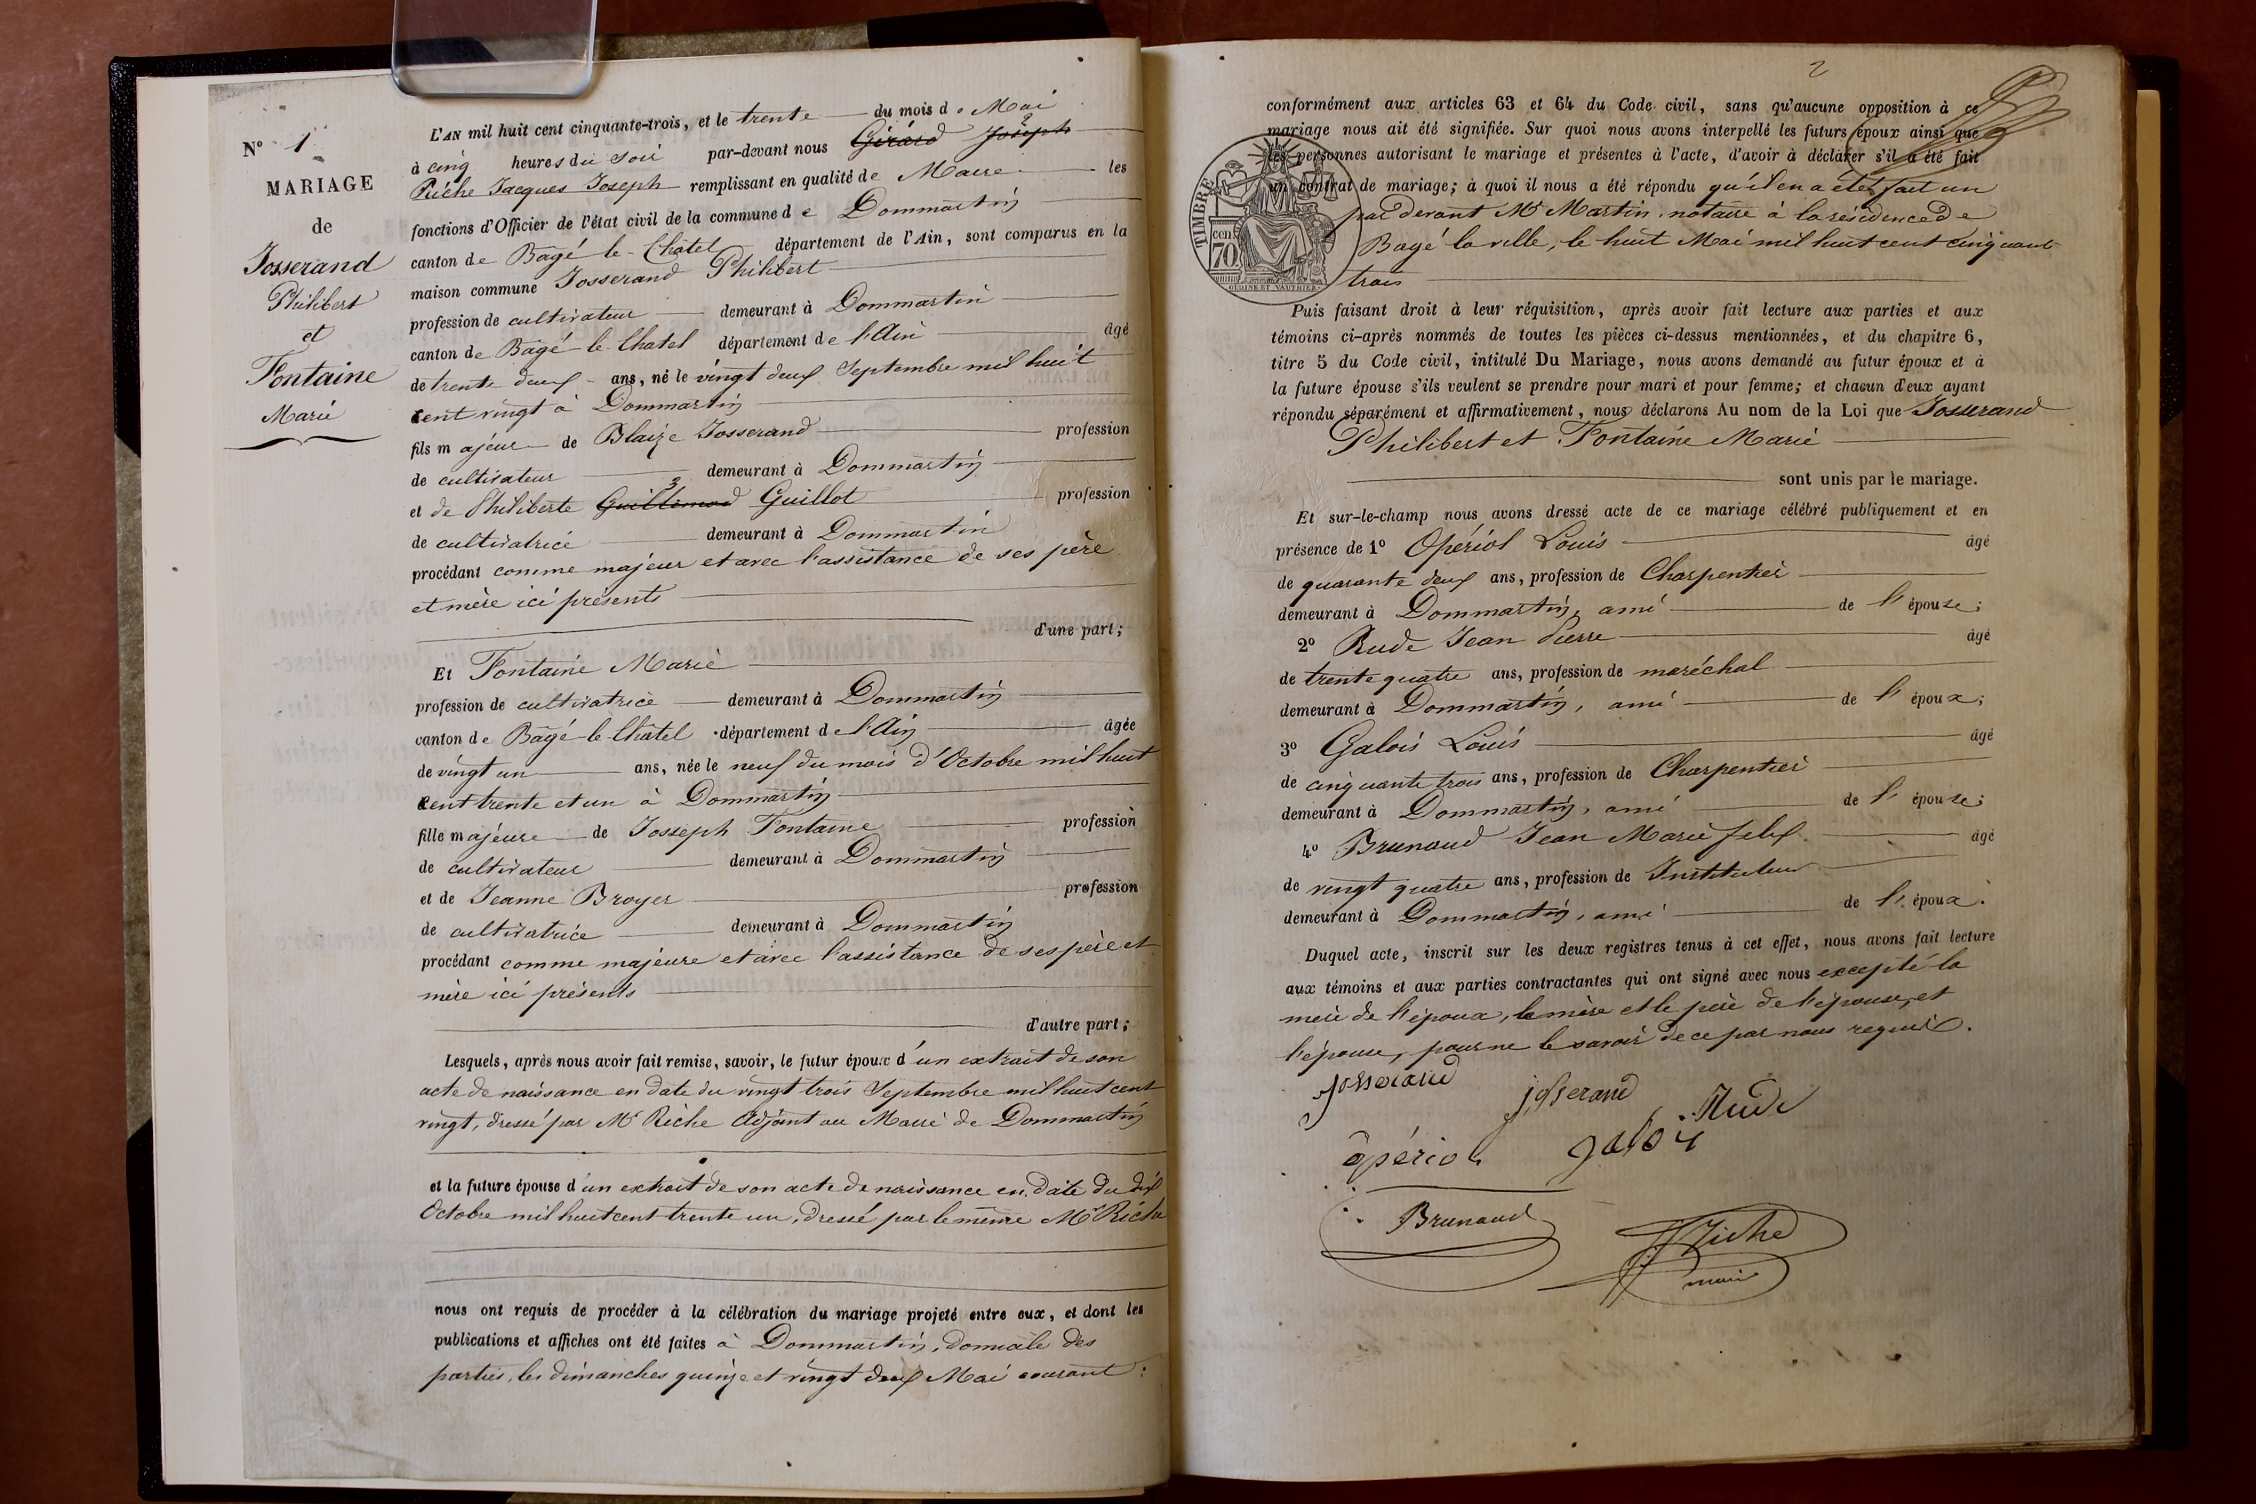 N° 1
MARIAGE
de
Josserand
Philibert
et
Fontaine
Marie
L'AN mil huit cent cinquante-trois, et le trente du mois de Mai
à cinq heures du soir par-devant nous Gérard Joseph 2
Riche Jacques Joseph remplissant en qualité de Maire les
fonctions d'Officier de l'état civil de la commune de Dommartin
canton de Bâgé-le-Châtel département de l'Ain, sont comparus en la
maison commune Josserand Philibert
profession de cultivateur demeurant à Dommartin
canton de Bâgé-le-Chatel département de l'Ain âgé
de trente deux ans, né le vingt deux Septembre mil huit
cent vingt à Dommartin
fils majeur de Blaize Josserand profession
de cultivateur demeurant à Dommartin
et de Philiberte Guillemod 3 Guillot profession
de cultivatrice demeurant à Dommartin
procédant comme majeur et avec l'assistance de ses père
et mère ici présents
d'une part;
Et Fontaine Marie
profession de cultivatrice demeurant à Dommartin
canton de Bâgé-le-Châtel département de l'Ain âgée
de vingt un ans, née le neuf du mois d'Octobre mil huit
cent trente et un à Dommartin
fille majeure de Josseph Fontaine profession
de cultivateur demeurant à Dommartin
et de Jeanne Broyer profession
de cultivatrice demeurant à Dommartin
procédant comme majeure et avec l'assistance de ses père et
mère ici présents
d'autre part;
Lesquels, après nous avoir fait remise, savoir, le futur époux d'un extrait de son
acte de naissance en date du vingt trois Septembre mil huit cent
vingt, dressé par Mr Riche Adjoint au Maire de Dommartin
et la future épouse d'un extrait de son acte de naissance en date du dix
Octobre mil huit cent trente un, dressé par le même Mr Riche
nous ont requis de procéder à la célébration du mariage projeté entre eux, et dont les
publications et affiches ont été faites à Dommartin, domicile des
parties, les dimanches quinze et vingt deux Mai courant:
2
conformément aux articles 63 et 64 du Code civil, sans qu'aucune opposition à ce
mariage nous ait été signifiée. Sur quoi nous avons interpellé les futurs époux ainsi que
les personnes autorisant le mariage et présentes à l'acte, d'avoir à déclarer s'il a été fait
un contrat de mariage; à quoi il nous a été répondu qu'il en a été fait un
par devant Me Martin, notaire à la résidence de
Bagé la ville, le huit Mai mil huit cent cinquante
trois
TIMBRE
70 cen
Puis faisant droit à leur réquisition, après avoir fait lecture aux parties et aux
témoins ci-après nommés de toutes les pièces ci-dessus mentionnées, et du chapitre 6,
titre 5 du Code civil, intitulé Du Mariage, nous avons demandé au futur époux et à
la future épouse s'ils veulent se prendre pour mari et pour femme; et chacun d'eux ayant
répondu séparément et affirmativement, nous déclarons Au nom de la Loi que Josserand
Philibert et Fontaine Marie
sont unis par le mariage.
Et sur-le-champ nous avons dressé acte de ce mariage célébré publiquement et en
présence de 1° Opériol Louis âgé
de quarante deux ans, profession de Charpentier
demeurant à Dommartin, ami de l'épouse;
2° Rude Jean Pierre âgé
de trente quatre ans, profession de maréchal
demeurant à Dommartin, ami de l'époux;
3° Galois Louis âgé
de cinquante trois ans, profession de Charpentier
demeurant à Dommartin, ami de l'épouse;
4° Brunaud Jean Marie felix âgé
de vingt quatre ans, profession de Instituteur
demeurant à Dommartin, ami de l'époux.
Duquel acte, inscrit sur les deux registres tenus à cet effet, nous avons fait lecture
aux témoins et aux parties contractantes qui ont signé avec nous excepté la
mère de l'époux, la mère et le père de l'épouse, et
l'épouse, pour ne le savoir de ce par nous requis.
Josserand josserand Rude
opériol galoy
Brunaud Riche
maire